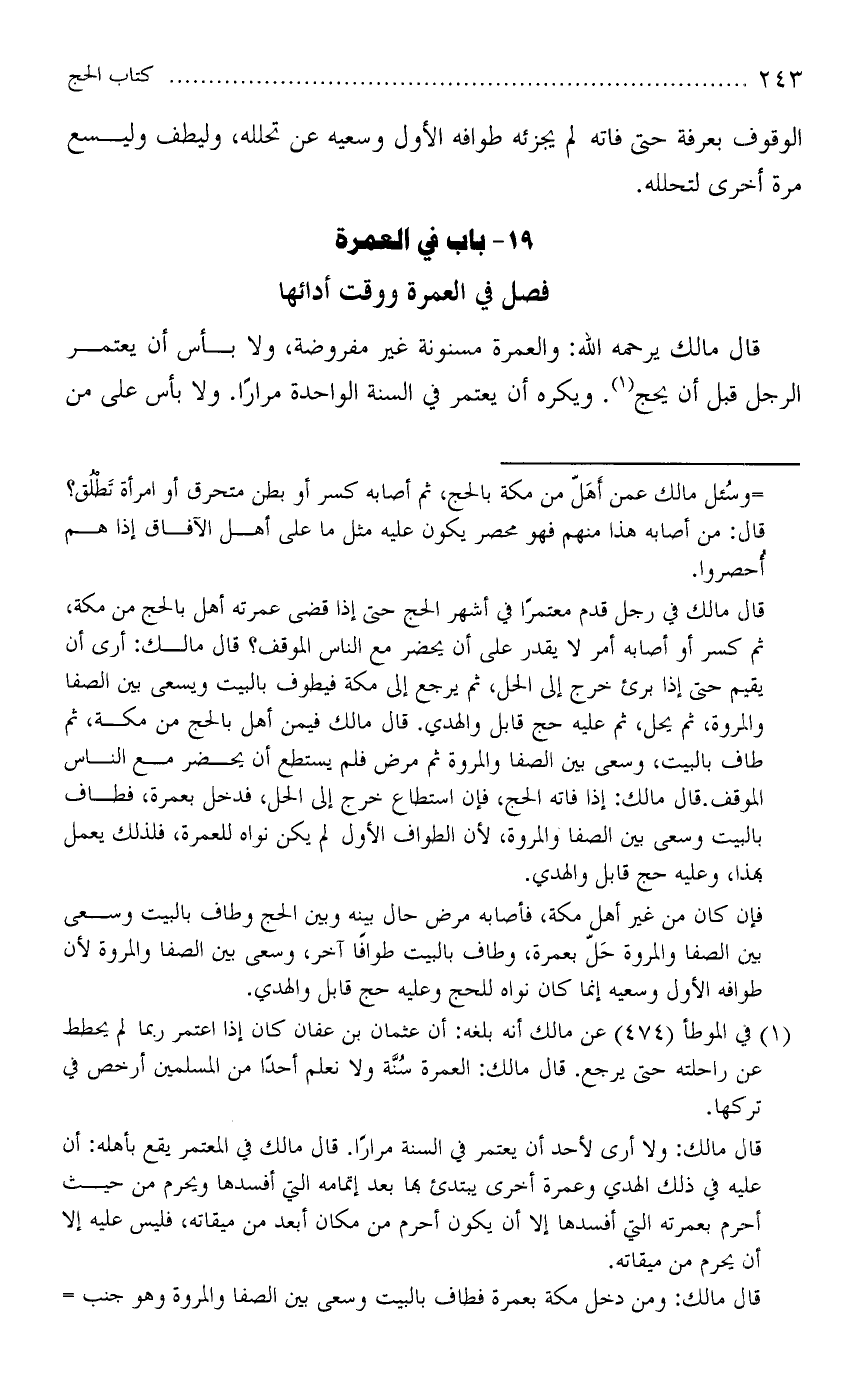 ٢٤٣ ........................................................................ كتاب الحج
الوقوف بعرفة حتى فاته لم يجزئه طوافه الأول وسعيه عن تحلله، وليطف وليسع
مرة أخرى لتحلله.
١٩- باب في العمرة
فصل في العمرة ووقت أدائها
قال مالك يرحمه الله: والعمرة مسنونة غير مفروضة، ولا بأس أن يعتمر
الرجل قبل أن يحج(١). ويكره أن يعتمر في السنة الواحدة مرارًا. ولا بأس على من
=وسُئل مالك عمن أَهَلّ من مكة بالحج، ثم أصابه كسر أو بطن متحرق أو امرأة تَطْلُق؟
قال: من أصابه هذا منهم فهو محصر يكون عليه مثل ما على أهل الآفاق إذا هم
أُحصروا.
قال مالك في رجل قدم معتمرًا في أشهر الحج حتى إذا قضى عمرته أهل بالحج من مكة،
ثم كسر أو أصابه أمر لا يقدر على أن يحضر مع الناس الموقف؟ قال مالك: أرى أن
يقيم حتى إذا برئ خرج إلى الحل، ثم يرجع إلى مكة فيطوف بالبيت ويسعى بين الصفا
والمروة، ثم يحل، ثم عليه حج قابل والهدي. قال مالك فيمن أهل بالحج من مكة، ثم
طاف بالبيت، وسعى بين الصفا والمروة ثم مرض فلم يستطع أن يحضر مع الناس
الموقف.قال مالك: إذا فاته الحج، فإن استطاع خرج إلى الحل، فدخل بعمرة، فطاف
بالبيت وسعى بين الصفا والمروة، لأن الطواف الأول لم يكن نواه للعمرة، فلذلك يعمل
بهذا، وعليه حج قابل والهدي.
فإن كان من غير أهل مكة، فأصابه مرض حال بينه وبين الحج وطاف بالبيت وسعى
بين الصفا والمروة حَلّ بعمرة، وطاف بالبيت طوافًا آخر، وسعى بين الصفا والمروة لأن
طوافه الأول وسعيه إنما كان نواه للحج وعليه حج قابل والهدي.
(١) في الموطأ (٤٧٤) عن مالك أنه بلغه: أن عثمان بن عفان كان إذا اعتمر ربما لم يحطط
عن راحلته حتى يرجع. قال مالك: العمرة سُنَّة ولا نعلم أحدًا من المسلمين أرخص في
تركها.
قال مالك: ولا أرى لأحد أن يعتمر في السنة مرارًا. قال مالك في المعتمر يقع بأهله: أن
عليه في ذلك الهدي وعمرة أخرى يبتدئ بها بعد إتمامه التي أفسدها ويحرم من حيث
أحرم بعمرته التي أفسدها إلا أن يكون أحرم من مكان أبعد من ميقاته، فليس عليه إلا
أن يحرم من ميقاته.
قال مالك: ومن دخل مكة بعمرة فطاف بالبيت وسعى بين الصفا والمروة وهو جنب =